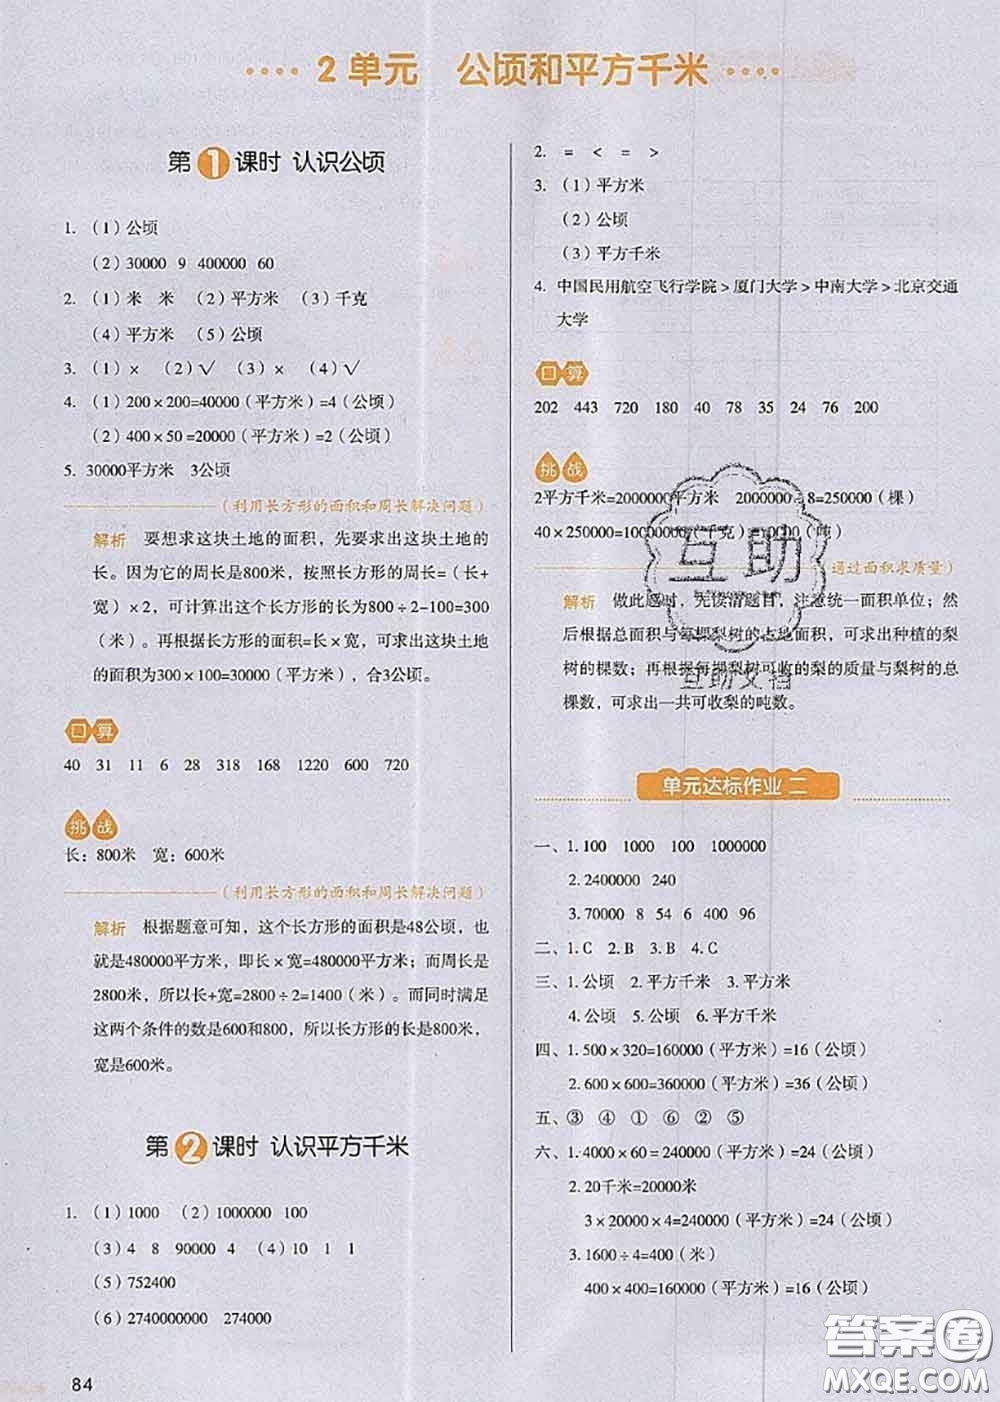 2 单元 公顷和平方千米
第1课时 认识公顷
1. (1)公顷
(2)30000 9 400000 60
2. (1)米 米 (2)平方米 (3)千克
(4)平方米 (5)公顷
3. (1)× (2)√ (3)× (4)√
4. (1)200×200=40000(平方米)=4(公顷)
(2)400×50=20000(平方米)=2(公顷)
5. 30000平方米 3公顷
(利用长方形的面积和周长解决问题)
解析 要想求这块土地的面积,先要求出这块土地的
长。因为它的周长是800米,按照长方形的周长=(长+
宽)×2,可计算出这个长方形的长为800÷2-100=300
(米)。再根据长方形的面积=长×宽,可求出这块土地
的面积为300×100=30000(平方米),合3公顷。
口算
40 31 11 6 28 318 168 1220 600 720
挑战
长:800米 宽:600米
(利用长方形的面积和周长解决问题)
解析 根据题意可知,这个长方形的面积是48公顷,也
就是480000平方米,即长×宽=480000平方米;而周长是
2800米,所以长+宽=2800÷2=1400(米)。而同时满足
这两个条件的数是600和800,所以长方形的长是800米,
宽是600米。
第2课时 认识平方千米
1. (1)1000 (2)1000000 100
(3)4 8 90000 4 (4)10 1 1
(5)752400
(6)2740000000 274000
84
2. = < = >
3. (1)平方米
(2)公顷
(3)平方千米
4. 中国民用航空飞行学院>厦门大学>中南大学>北京交通
大学
口算
202 443 720 180 40 78 35 24 76 200
挑战
2平方千米=2000000平方米 2000000÷8=250000(棵)
40×250000=10000000(千克)=10000(吨)
(通过面积求质量)
解析 做此题时,先读清题目,注意统一面积单位;然
后根据总面积与每棵梨树的占地面积,可求出种植的梨
树的棵数;再根据每棵梨树可收的梨的质量与梨树的总
棵数,可求出一共可收梨的吨数。
互助
互助文档
单元达标作业 二
一、1.100 1000 100 1000000
2.2400000 240
3.70000 8 54 6 400 96
二、1.C 2.B 3.B 4.C
三、1.公顷 2.平方千米 3.平方米
4.公顷 5.公顷 6.平方千米
四、1.500×320=160000(平方米)=16(公顷)
2.600×600=360000(平方米)=36(公顷)
五、③ ④ ① ⑥ ② ⑤
六、1.4000×60=240000(平方米)=24(公顷)
2.20千米=20000米
3×20000×4=240000(平方米)=24(公顷)
3.1600÷4=400(米)
400×400=160000(平方米)=16(公顷)
答案圈
MXQE.COM